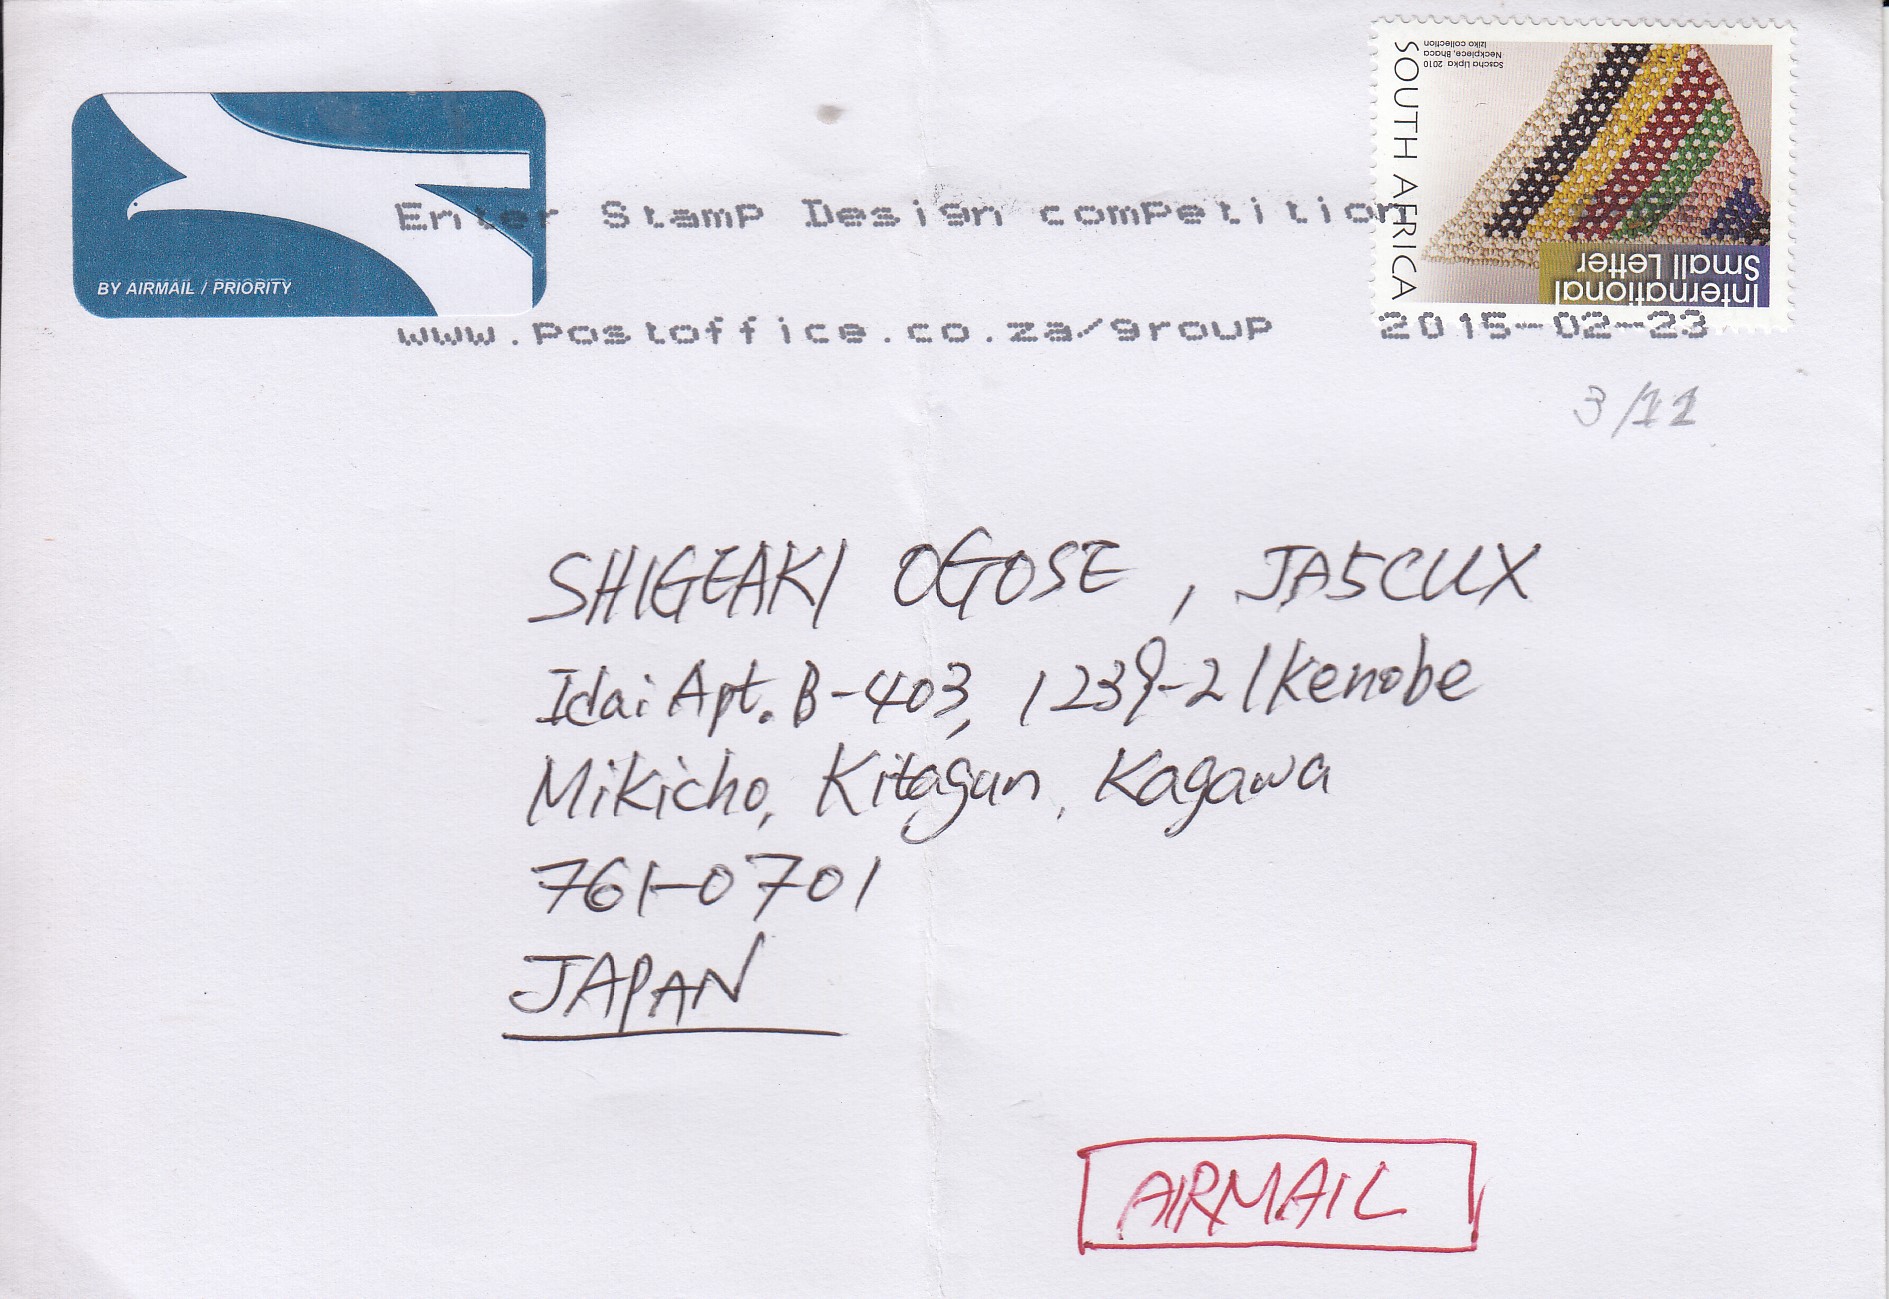 Sascha Lipka 2010
Neckpiece, Bhaca
Iziko collection
SOUTH AFRICA
International
Small Letter
BY AIRMAIL / PRIORITY
Enter Stamp Design competition
www.postoffice.co.za/group 2015-02-23
3/11
SHIGEAKI OGOSE, JA5CUX
Idai Apt. B-403, 1239-2 Ikenobe
Mikicho, Kitagun, Kagawa
761-0701
JAPAN
AIRMAIL